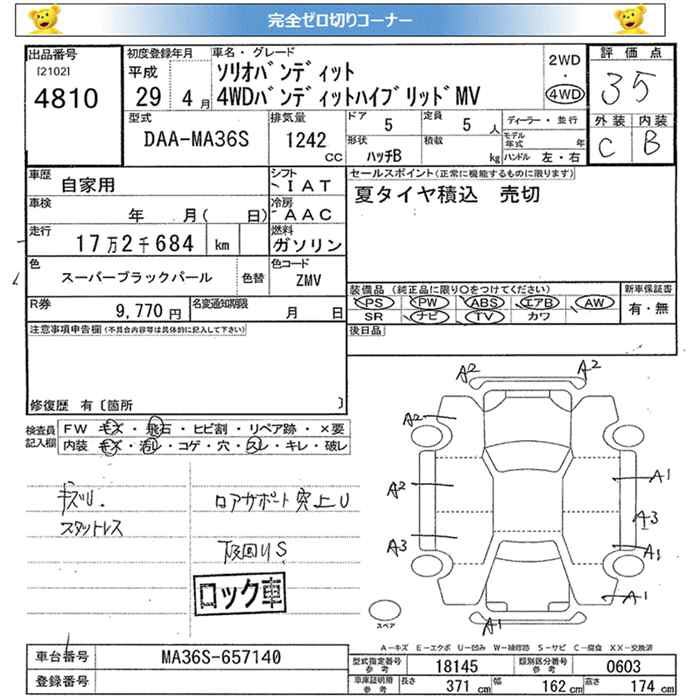 完全ゼロ切りコーナー
出品番号
[2102]
4810
初度登録年月
平成
29 年 4 月
車名・グレード
ソリオバンディット
4WDバンディットハイブリッドMV
2WD
・
4WD
評価点
35
外装 内装
C B
型式
DAA-MA36S
排気量
1242
CC
ドア 5
定員 5 人
形状
ハッチB
積載
kg
ディーラー・並行
モデル
年式 年
ハンドル 左・右
車歴
自家用
シフト
IAT
車検
年 月( 日)
冷房
AAC
走行
17万2千684 km
燃料
ガソリン
色
スーパーブラックパール
色替
色コード
ZMV
R券
9,770 円
名変通知期限
月 日
セールスポイント(正常に機能するものに限ります)
夏タイヤ積込 売切
装備品(純正品に限り○をつけてください)
新車保証書
PS PW ABS エアB AW
SR ナビ TV カワ
有・無
後日品
注意事項申告欄(不具合内容等は具体的に記入して下さい)
修復歴 有〔箇所 〕
検査員
記入欄
FW キズ・飛石・ヒビ割・リペア跡・×要
内装 キズ・汚レ・コゲ・穴・スレ・キレ・破レ
キズU.
スタットレス
ロアサポート突上U
下廻りS
ロック車
A2
A2
A2
A2
A1
A3
A3
A1
A1
A1
スペア
A-キズ E-エクボ U-凹み W-補修跡 S-サビ C-腐食 XX-交換済
車台番号
MA36S-657140
登録番号
型式指定番号
参考
18145
類別区分番号
参考
0603
車庫証明用
参考
長さ 371 cm
幅 162 cm
高さ 174 cm